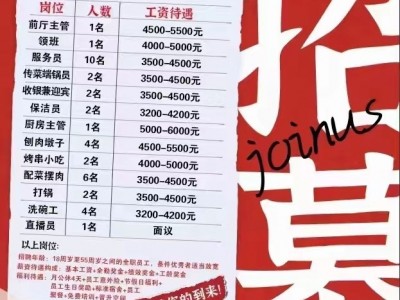 岗位 人数 工资待遇
前厅主管 1名 4500-5500元
领班 1名 4000-5000元
服务员 10名 3500-4500元
传菜端锅员 2名 3500-4500元
收银兼迎宾 2名 3500-4500元
保洁员 2名 3200-4200元
厨房主管 1名 5000-6000元
刨肉墩子 4名 4500-5500元
烤串小吃 2名 4000-5000元
配菜摆肉 6名 3500-4500元
打锅 2名 3500-4500元
洗碗工 4名 3200-4200元
直播员 1名 面议
以上岗位:
招聘年龄:18周岁至55周岁之间的全职员工,条件优秀者适当放宽
薪资待遇构成:基本工资+全勤奖金+绩效奖金+工龄奖金
福利待遇:月公休4天+员工意外险+节假日福利+
员工生日奖励+标准宿舍+员工
聚餐+免费培训+晋升空间
的到来!
招募
joinus